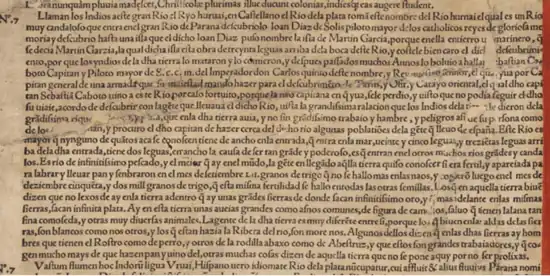 Lææ nunquam pluuia madescet, Christicolæ plurimas illuc ducunt colonias, indiesque eas augere student.
Nº.7 Llaman los Indios aeste gran Rio el Ryo huruai, en Castellano el Rio de la plata toma este nombre del Rio hurnai el qual es un Rio
muy candaloso que entra enel gran Rio de Parana descubriolo Ioan Diaz de Solis piloto mayor de los catholicos reyes de gloriosa me
moria y descubrio hasta una isla que el dicho Ioan Diaz puso nombre la isla de Martin Garcia, porque enella enterro
se decia Martin Garcia, la qual dicha isla esta obra de treynta leguas arriba dela boca deste Rio, y costole bien caro el dicho descubrimi
ento, por que los yndios de la dha tierra lo mataron y lo comieron, y despues passados muchos Annos lo boluio a hallar
Coboto Capitan y Piloto mayor de S. c. c. m. del Imperador don Carlos quinto deste nombre, y Rey el qua yua por Ca
pitan general de una armada que su mandado hazer para el descubrim y Ofir, y Catayo oriental, el qual dicho capi
tan Sebastia Caboto uino a este Rio por caso fortuito, porque la nao capitana en que yua, se le perdio, y uisto que no podia seguir el dho
su uiaie, acordo de descubrir con la gente que lleuaua el dicho Rio, uista la grandissima relacion que los Indios dela le dieron dela
grandissima que enla dha tierra auia, y no sin grandissimo trabaio y hambre, y peligros asi de su persona como
de los y procuro el dho capitan de hazer cerca del dicho rio algunas poblationes dela gente que lleuo de españa. Este Rio es
mayor que nynguno de quantos aca se conoscen tiene de ancho enla entrada, que entra enla mar, ueinte y cinco leguas, y trezientas leguas arri
ba dela dha entrada, tiene dos leguas, en ancho, la causa de ser tan grande y poderoso, es que entran enel otros muchos rios grandes y cauda
los. Es rio de infinitissimo pescado, y el meior que ay enel mundo, la gente en llegando aquella tierra quiso conoscer si era fertil, y apareiada pa
ra labrar y lleuar pan y senbraron en el mes de setiembre LII. granos de trigo que no se hallo mas enlas naos, y cogeron luego enel mes de
deziembre cinquenta, y dos mill granos de trigo, que esta misma fertilidad se hallo en todas las otras semillas. Los que en aquella tierra biuen
dizen que no lexos de ay enla tierra adentro que ay unas grandes sierras de donde sacan infinitissimo oro, y que mas adelante enlas mismas
sierras, sacan infinita plata. Ay en esta tierra unas aueias grandes como asnos comunes, de figura de camellos, saluo que tienen la lana tan
fina como seda, y otras muy diuersas animales. La gente de la dicha tierra es muy diferente entre si, porque los que biuen enlas aldas de las sier
ras, son blancos como nos otros, y los que estan hazia la Ribera del rio, son moreno. Algunos dellos dizen que enlas dhas sierras ay hom
bres que tienen el Rostro como de perro, y otros de la rodilla abaxo como de Abestruz, y que estos son grandes trabaiadores, y que co
gen mucho mays de que hazen pan y uino del, otras muchas cosas dizen de aquella tierra que no se pone aquy por no ser prolixas.
Nº.7 Vastum flumen hoc Indorū lingua Vruai, Hispano uero idiomate Rio de la plata nūcupatur, cui affluit alius fluuius Parana nomi